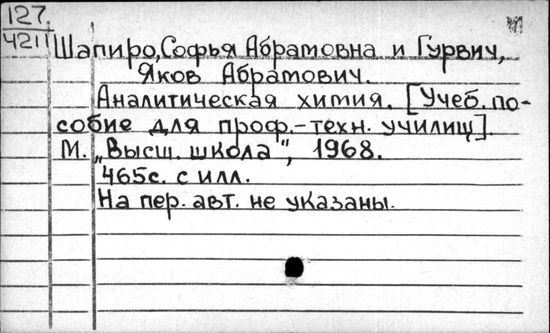 127
4211
Шапиро, Софья Абрамовна и Гурвич,
Яков Абрамович.
Аналитическая химия. [Учеб. по-
собие для проф.-техн. училищ].
М. „Высш. школа", 1968.
465с. с илл.
На пер. авт. не указаны.